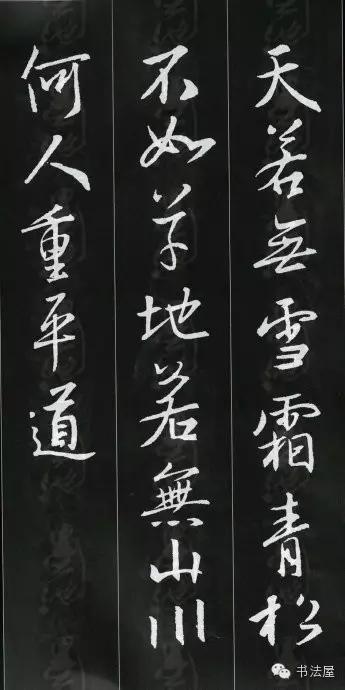 天若無雪霜青松
不如草地若無山川
何人重平道
书法屋